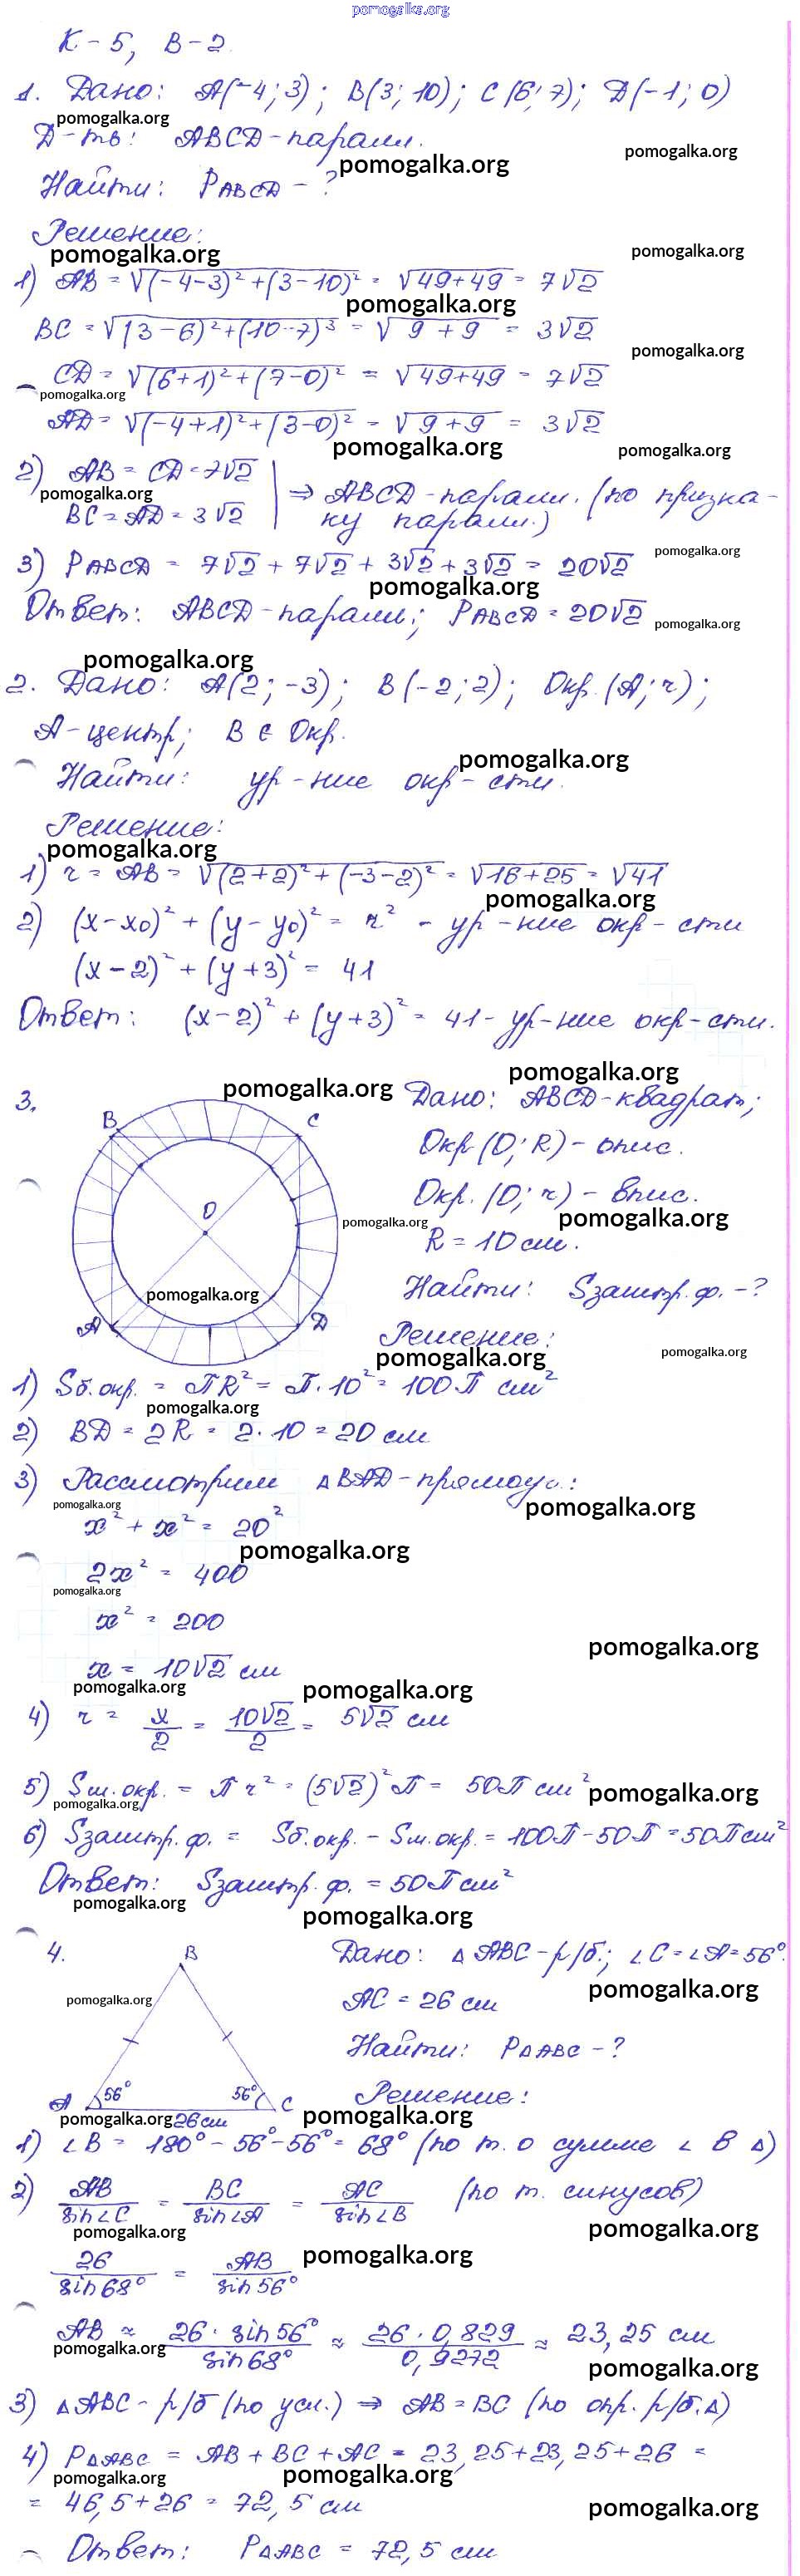 pomogalka.org
К-5, В-2.
1. Дано: A(-4; 3); B(3; 10); C(6; 7); D(-1; 0)
pomogalka.org
Д-ть: ABCD-паралл.
pomogalka.org pomogalka.org
Найти: PABCD - ?
Решение:
pomogalka.org pomogalka.org
1) AB = √(-4-3)² + (3-10)² = √49+49 = 7√2
pomogalka.org
BC = √(3-6)² + (10-7)³ = √9+9 = 3√2
pomogalka.org
CD = √(6+1)² + (7-0)² = √49+49 = 7√2
pomogalka.org
AD = √(-4+1)² + (3-0)² = √9+9 = 3√2
pomogalka.org pomogalka.org
2) AB = CD = 7√2
pomogalka.org
BC = AD = 3√2
⇒ ABCD-паралл. (по призна-
ку паралл.)
pomogalka.org
3) PABCD = 7√2 + 7√2 + 3√2 + 3√2 = 20√2
pomogalka.org
Ответ: ABCD-паралл; PABCD = 20√2
pomogalka.org
pomogalka.org
2. Дано: A(2; -3); B(-2; 2); Окр. (A; r);
A-центр; B ∈ Окр.
pomogalka.org
Найти: ур-ние окр-сти.
Решение:
pomogalka.org
1) r = AB = √(2+2)² + (-3-2)² = √16+25 = √41
pomogalka.org
2) (x-x0)² + (y-y0)² = r² - ур-ние окр-сти
(x-2)² + (y+3)² = 41
Ответ: (x-2)² + (y+3)² = 41 - ур-ние окр-сти.
pomogalka.org
3.
pomogalka.org
Дано: ABCD-квадрат;
B C
Окр (O; R) - опис.
Окр. (O; r) - впис.
O
pomogalka.org pomogalka.org
R = 10 см.
pomogalka.org
Найти: Sзаштр. ф. - ?
A D
Решение:
pomogalka.org pomogalka.org
1) Sб.окр. = ПR² = П·10² = 100П см²
pomogalka.org
2) BD = 2R = 2·10 = 20 см
3) Рассмотрим △BAD-прямоуг.:
pomogalka.org pomogalka.org
x² + x² = 20²
pomogalka.org
2x² = 400
pomogalka.org
x² = 200
pomogalka.org
x = 10√2 см
pomogalka.org pomogalka.org
4) r = x/2 = 10√2/2 = 5√2 см
5) Sм.окр. = Пr² = (5√2)²П = 50П см²
pomogalka.org pomogalka.org
6) Sзаштр.ф. = Sб.окр. - Sм.окр. = 100П-50П = 50П см²
Ответ: Sзаштр. ф. = 50П см²
pomogalka.org
pomogalka.org
4.
B
Дано: △ABC-р/б.; ∠C = ∠A = 56°.
pomogalka.org
pomogalka.org
AC = 26 см
Найти: P△ABC - ?
A 56° 56° C
Решение:
pomogalka.org 26 см
pomogalka.org
1) ∠B = 180° - 56° - 56° = 68° (по т. о сумме ∠ в △)
2) AB/sin∠C = BC/sin∠A = AC/sin∠B (по т. синусов)
pomogalka.org pomogalka.org
pomogalka.org
26/sin68° = AB/sin56°
AB ≈ 26·sin56°/sin68° ≈ 26·0,829/0,9272 ≈ 23,25 см
pomogalka.org
pomogalka.org
3) △ABC-р/б (по усл.) ⇒ AB = BC (по опр. р/б.△)
4) P△ABC = AB + BC + AC = 23,25+23,25+26 =
pomogalka.org pomogalka.org
= 46,5+26 = 72,5 см
pomogalka.org
Ответ: P△ABC = 72,5 см